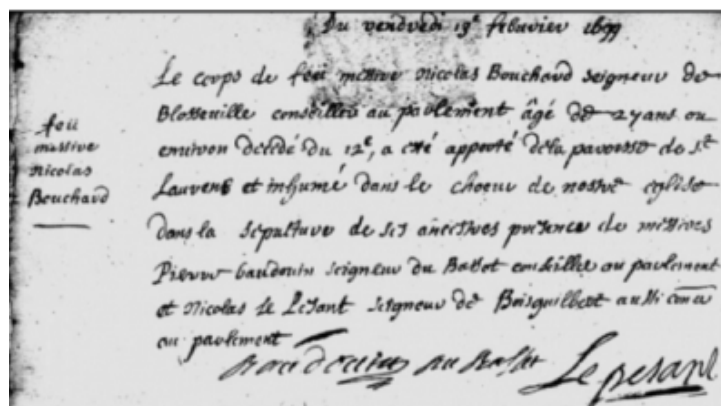 Du vendredi 13e febuvrier 1699
Le corps de feu messire Nicolas Bouchard seigneur de
Blosseuille conseiller au parlement âgé de 27 ans ou
environ decedé du 12e, a esté apporté de la paroisse de St
Laurens et inhumé dans le choeur de nostre eglise
dans la sepulture de ses ancestres presence de messires
Pierre baudouin seigneur du Basset conseiller au parlement
et Nicolas le Pesant seigneur de Boisguilbert aussi conser
au parlement
Baudouin du Basset Le pesant
feu
messire
nicolas
Bouchard